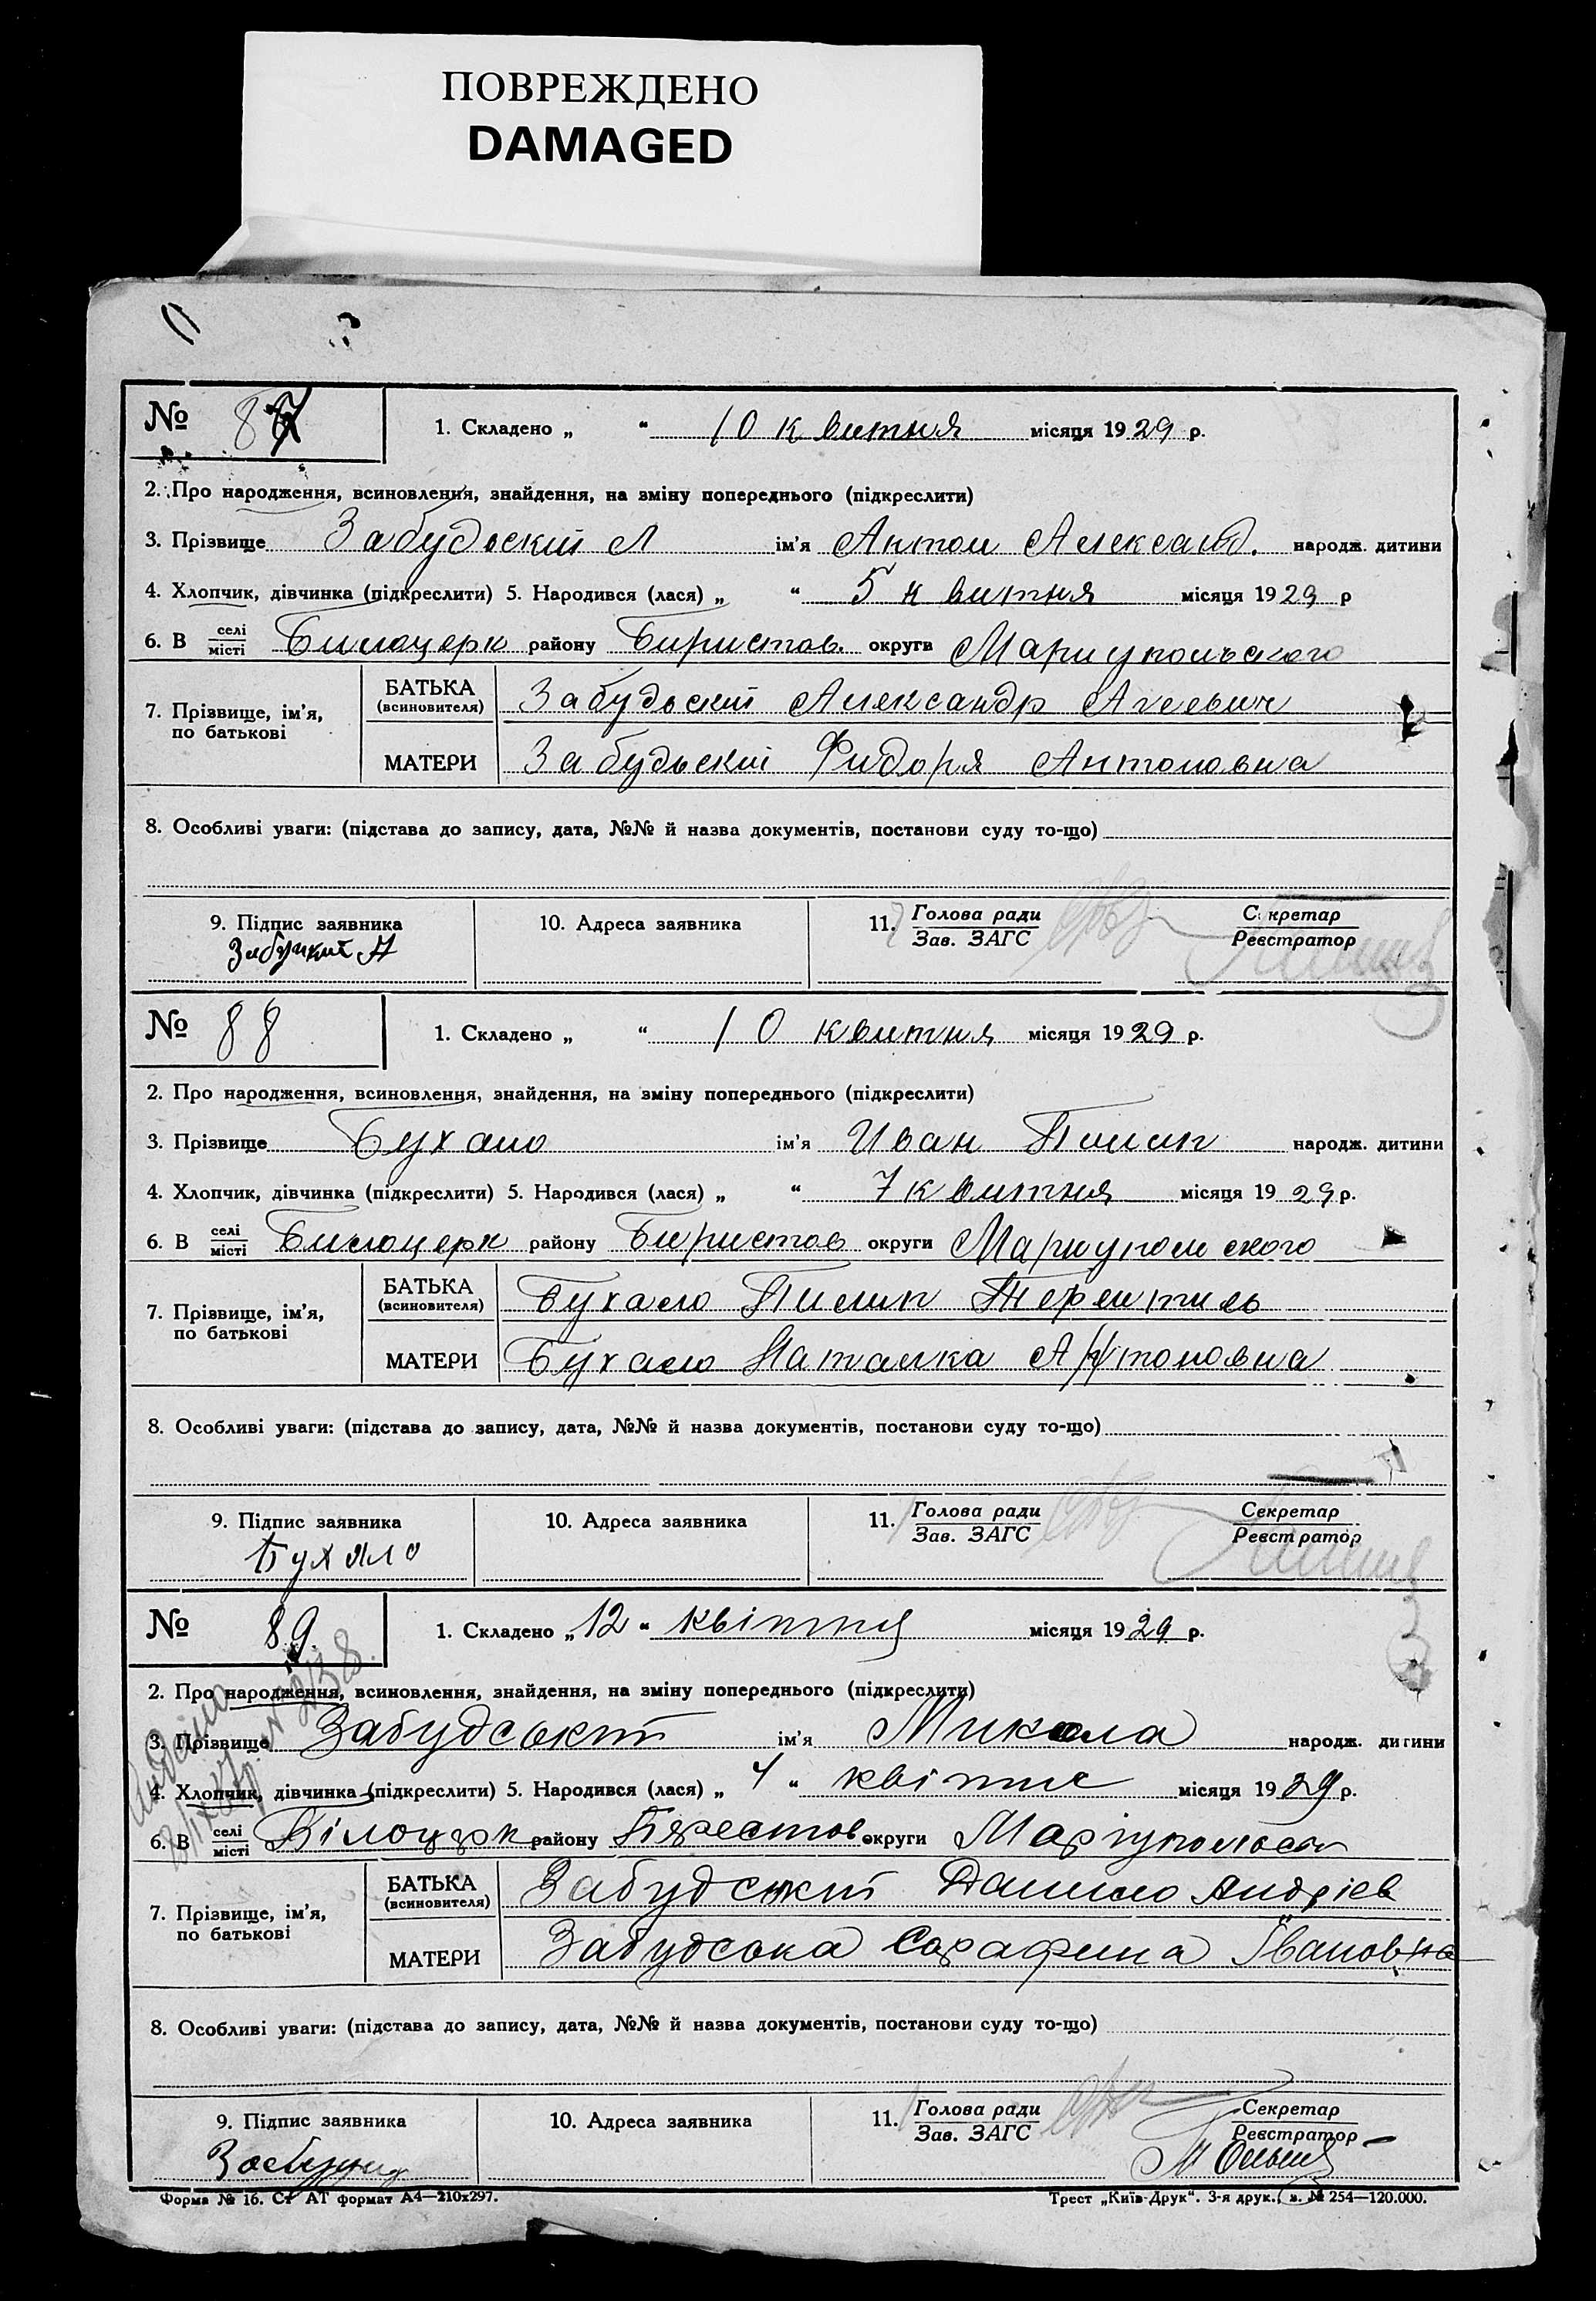 ПОВРЕЖДЕНО
DAMAGED
№ 87 1. Складено „ “ 10 квитня місяця 1929 р.
2. Про народження, всиновлення, знайдення, на зміну попереднього (підкреслити)
3. Прізвище Забудьский А ім’я Антон Александ. народж. дитини
4. Хлопчик, дівчинка (підкреслити) 5. Народився (лася) „ “ 5 квитня місяця 1929 р
6. В селі місті Билоцерк району Биристов. округи Мариупольского
7. Прізвище, ім’я, по батькові
БАТЬКА (всиновителя) Забудьский Александр
МАТЕРИ Забудьский Фидоря Антоновна
8. Особливі уваги: (підстава до запису, дата, №№ й назва документів, постанови суду то-що)
9. Підпис заявника 10. Адреса заявника 11. Голова ради Зав. ЗАГС Секретар Реєстратор
№ 88 1. Складено „ “ 10 квитня місяця 1929 р.
2. Про народження, всиновлення, знайдення, на зміну попереднього (підкреслити)
3. Прізвище Бухало ім’я Иван Пилип народж. дитини
4. Хлопчик, дівчинка (підкреслити) 5. Народився (лася) „ “ 7 квитня місяця 1929 р.
6. В селі місті Билоцерк району Биристов округи Мариуполского
7. Прізвище, ім’я, по батькові
БАТЬКА (всиновителя) Бухало Пилип
МАТЕРИ Бухало Наталка Антоновна
8. Особливі уваги: (підстава до запису, дата, №№ й назва документів, постанови суду то-що)
9. Підпис заявника 10. Адреса заявника 11. Голова ради Зав. ЗАГС Секретар Реєстратор
Бухало
№ 89 1. Складено „12“ квітня місяця 1929 р.
2. Про народження, всиновлення, знайдення, на зміну попереднього (підкреслити)
3. Прізвище Забудський ім’я Микола народж. дитини
4. Хлопчик, дівчинка (підкреслити) 5. Народився (лася) „ 4 “ квітня місяця 1929 р.
6. В селі місті Білоцерк району Берестов округи
7. Прізвище, ім’я, по батькові
БАТЬКА (всиновителя) Забудський Данило Андрієв
МАТЕРИ Забудська Сарафина Івановна
8. Особливі уваги: (підстава до запису, дата, №№ й назва документів, постанови суду то-що)
9. Підпис заявника 10. Адреса заявника 11. Голова ради Зав. ЗАГС Секретар Реєстратор
Форма № 16. Ст АТ формат А4—210х297. Трест „Київ-Друк“. 3-я друк., з. № 254—120.000.